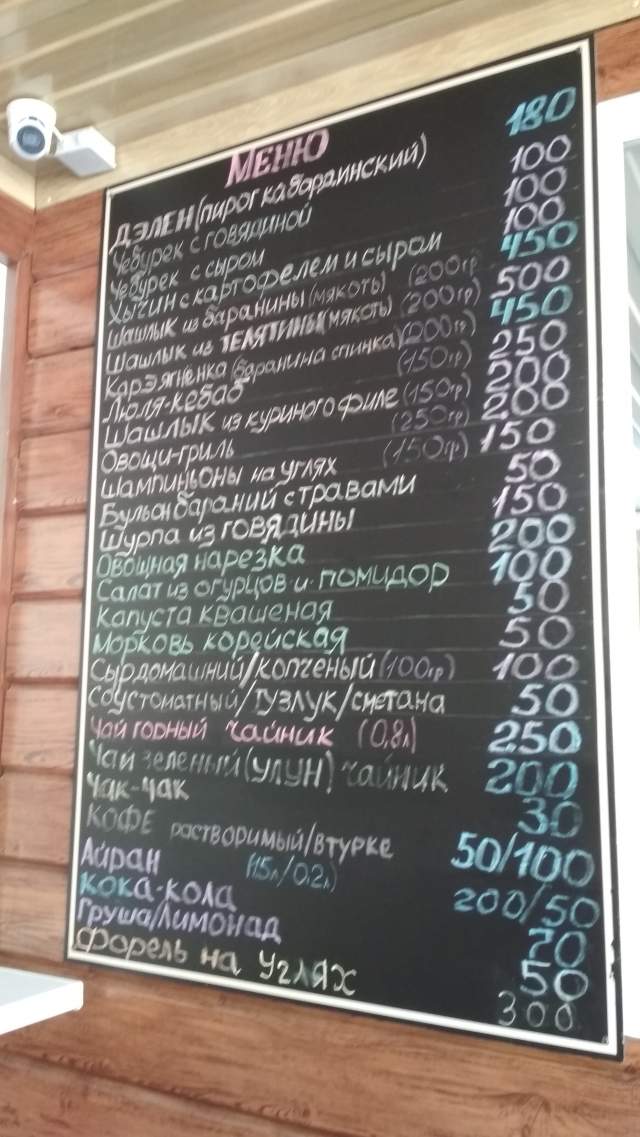 МЕНЮ
ДЭЛЕН (ПИРОГ КАБАРДИНСКИЙ) 180
Чебурек с говядиной 100
Чебурек с сыром 100
Хычин с картофелем и сыром 100
Шашлык из баранины (мякоть) (200гр) 450
Шашлык из ТЕЛЯТИНЫ (мякоть) (200гр) 500
Карэ ягнёнка (баранина спинка) (200гр) 450
Люля-кебаб (150гр) 250
Шашлык из куриного филе (150гр) 200
Овощи-гриль (250гр) 200
Шампиньоны на углях (150гр) 150
Бульон бараний с травами 50
Шурпа из говядины 150
Овощная нарезка 200
Салат из огурцов и помидор 100
Капуста квашеная 50
Морковь корейская 50
Сыр домашний/копченый (100гр) 100
Соус томатный/тузлук/сметана 50
Чай горный чайник (0,8л) 250
Чай зеленый (улун) чайник 200
Чак-чак 30
КОФЕ растворимый/в турке 50/100
Айран (1,5л/0,2л) 200/50
Кока-кола 70
Груша/Лимонад 50
Форель на углях 300